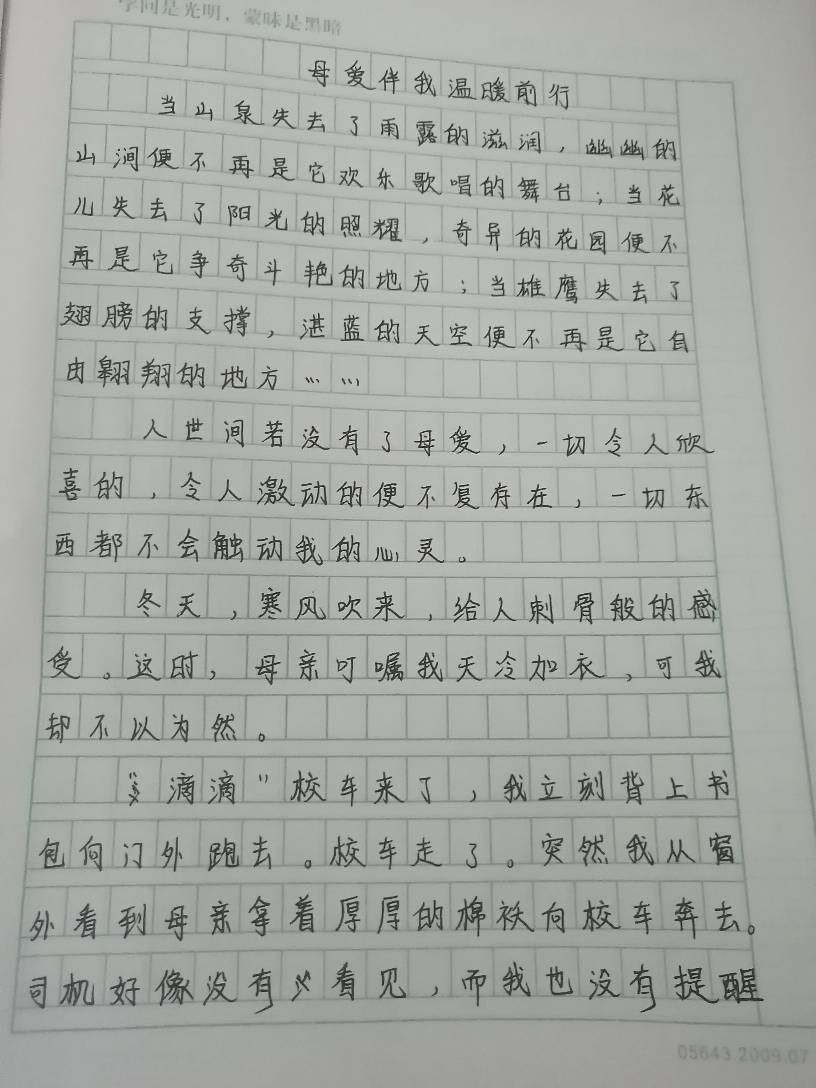 学问是光明，蒙昧是黑暗
母爱伴我温暖前行
当山泉失去了雨露的滋润，幽幽的
山涧便不再是它欢乐歌唱的舞台；当花
儿失去了阳光的照耀，奇异的花园便不
再是它争奇斗艳的地方；当雄鹰失去了
翅膀的支撑，湛蓝的天空便不再是它自
由翱翔的地方……
人世间若没有了母爱，一切令人欣
喜的，令人激动的便不复存在，一切东
西都不会触动我的心灵。
冬天，寒风吹来，给人刺骨般的感
受。这时，母亲叮嘱我天冷加衣，可我
却不以为然。
“滴滴”校车来了，我立刻背上书
包向门外跑去。校车走了。突然我从窗
外看到母亲拿着厚厚的棉袄向校车奔去。
司机好像没有看见，而我也没有提醒
05643.2009.07